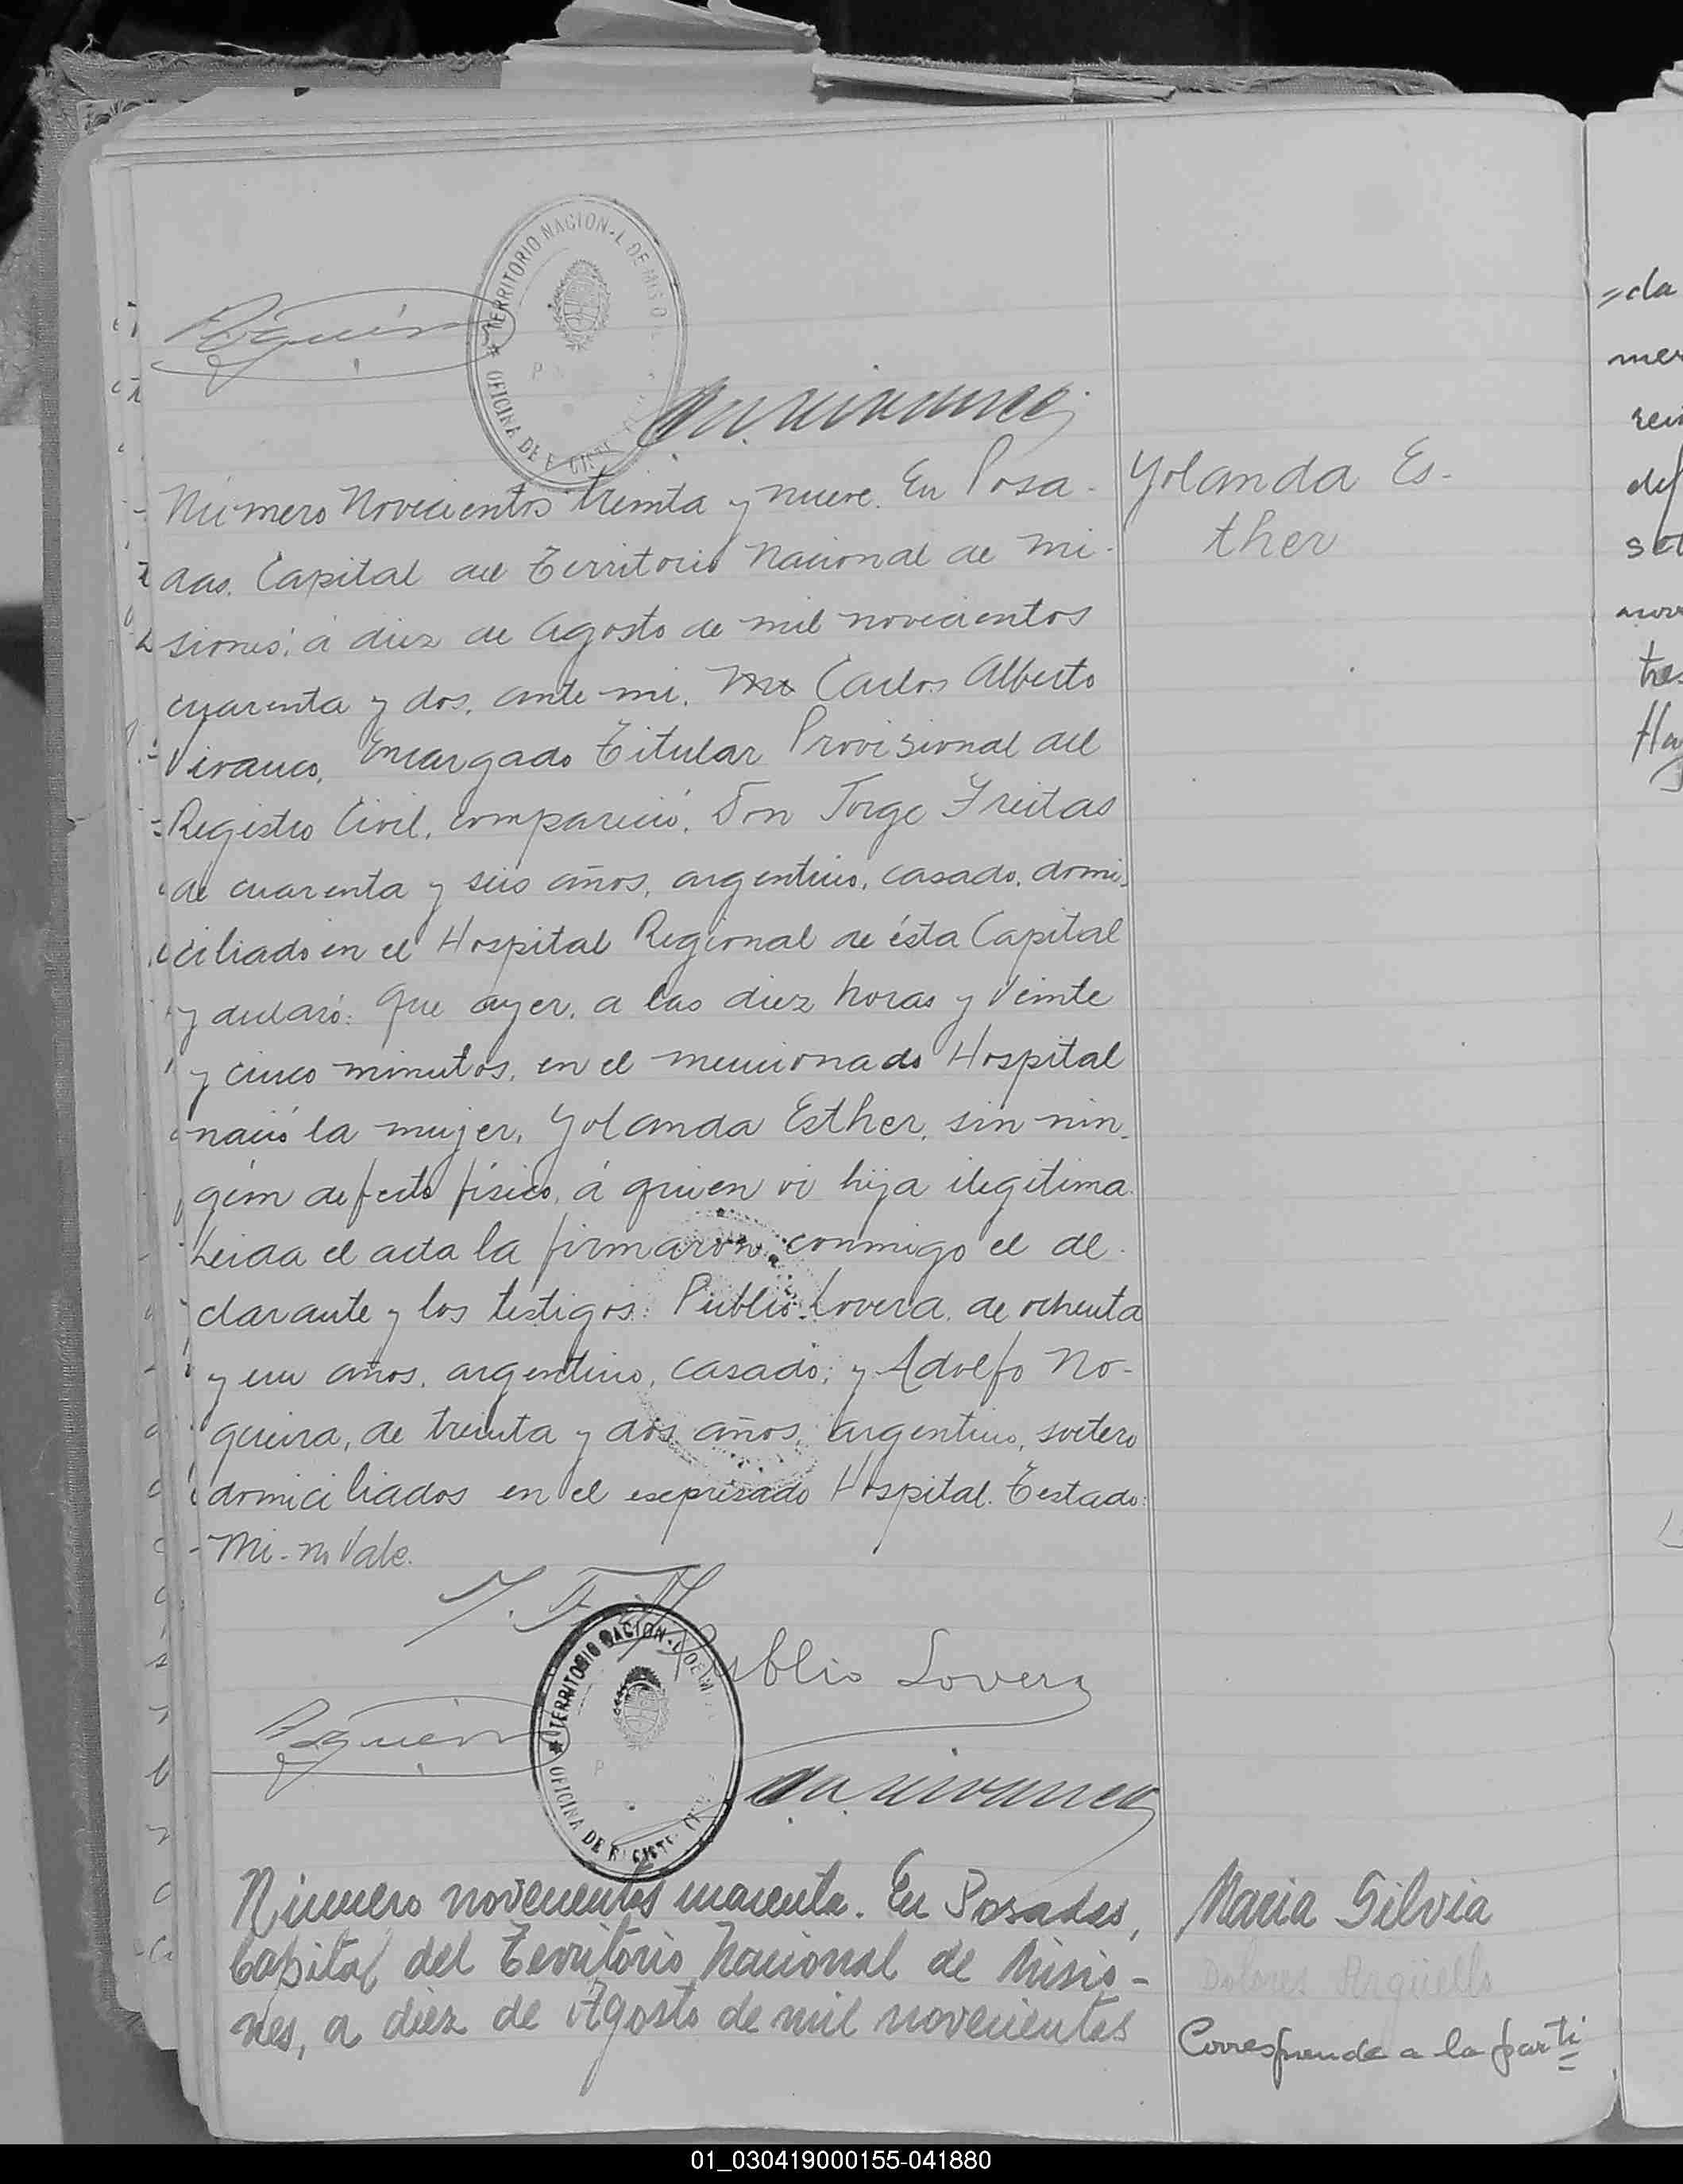 TERRITORIO NACION-L DE MISIO
OFICINA DE
Número Novecientos treinta y nueve. En Posa-
Yolanda Es-
ther
das. Capital del Territorio Nacional de Mi-
siones; á diez de Agosto de mil novecientos
cuarenta y dos, ante mi, Mi Carlos Alberto
Vivanco, Encargado Titular Provisional del
Registro Civil, compareció, Don Jorge Freitas
de cuarenta y seis años, argentino, casado, domi-
ciliado en el Hospital Regional de ésta Capital
y declaró: Que ayer, a las diez horas y veinte
y cinco minutos, en el mencionado Hospital
nació la mujer, Yolanda Esther, sin nin-
gún defecto físico, á quien vi hija ilegitima.
Leida el acta la firmaron conmigo el de-
clarante y los testigos: Publio Lovera, de ochenta
y un años, argentino, casado; y Adolfo No-
gueira, de treinta y dos años, argentino, soltero
domiciliados en el esepresado Hospital. Testado:
Mi-no Vale.
Publio Lovera
TERRITORIO NACION-L DE MI
OFICINA DE
Número novecientos cuarenta. En Posadas,
Maria Silvia
Capital del Territorio Nacional de Misio-
Dolores Argüello
nes, a diez de Agosto de mil novecientos
Corresponde a la parti
=da
tre
01_030419000155-041880